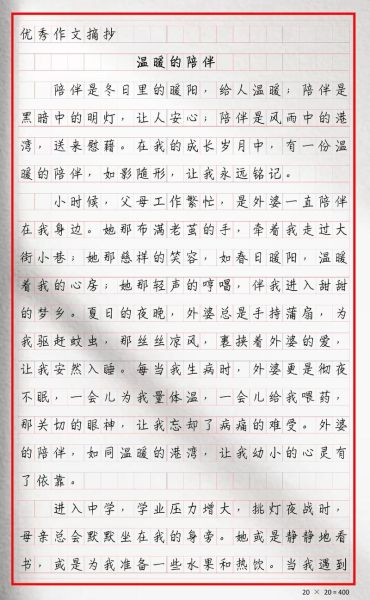 优秀作文摘抄
温暖的陪伴
陪伴是冬日里的暖阳，给人温暖；陪伴是
黑暗中的明灯，让人安心；陪伴是风雨中的港
湾，送来慰藉。在我的成长岁月中，有一份温
暖的陪伴，如影随形，让我永远铭记。
小时候，父母工作繁忙，是外婆一直陪伴
在我身边。她那布满老茧的手，牵着我走过大
街小巷；她那慈祥的笑容，如春日暖阳，温暖
着我的心房；她那轻声的哼唱，伴我进入甜甜
的梦乡。夏日的夜晚，外婆总是手持蒲扇，为
我驱赶蚊虫，那丝丝凉风，裹挟着外婆的爱，
让我安然入睡。每当我生病时，外婆更是彻夜
不眠，一会儿为我量体温，一会儿给我喂药，
那关切的眼神，让我忘却了病痛的难受。外婆
的陪伴，如同温暖的港湾，让我幼小的心灵有
了依靠。
进入中学，学业压力增大，挑灯夜战时，
母亲总会默默坐在我的身旁。她或是静静地看
书，或是为我准备一些水果和热饮。当我遇到
20 × 20 = 400